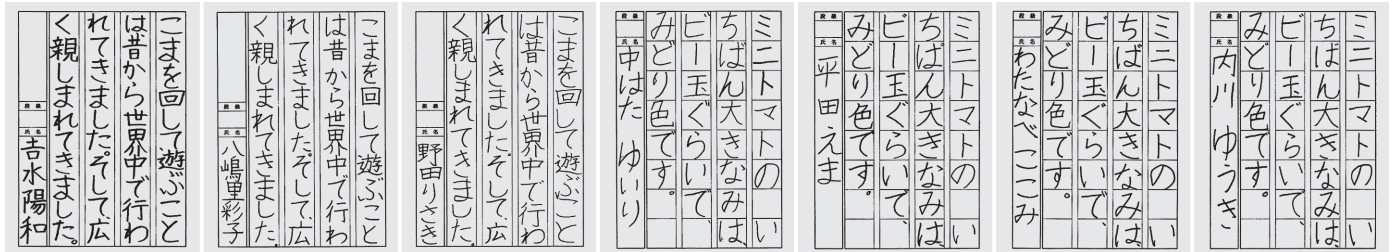 こまを回して遊ぶこと
は昔から世界中で行わ
れてきました。そして、広
く親しまれてきました。
段級 氏名 吉水陽和
こまを回して遊ぶこと
は昔から世界中で行わ
れてきました。そして、広
く親しまれてきました。
段級 氏名 八嶋里彩子
こまを回して遊ぶこと
は昔から世界中で行わ
れてきました。そして、広
く親しまれてきました。
段級 氏名 野田りさき
ミニトマトの い
ちばん大きなみは、
ビー玉ぐらいで、
みどり色です。
段級 氏名 中はた ゆいり
ミニトマトの い
ちばん大きなみは、
ビー玉ぐらいで、
みどり色です。
段級 氏名 平田えま
ミニトマトの い
ちばん大きなみは、
ビー玉ぐらいで、
みどり色です。
段級 氏名 わたなべここみ
ミニトマトの い
ちばん大きなみは、
ビー玉ぐらいで、
みどり色です。
段級 氏名 内川 ゆうき